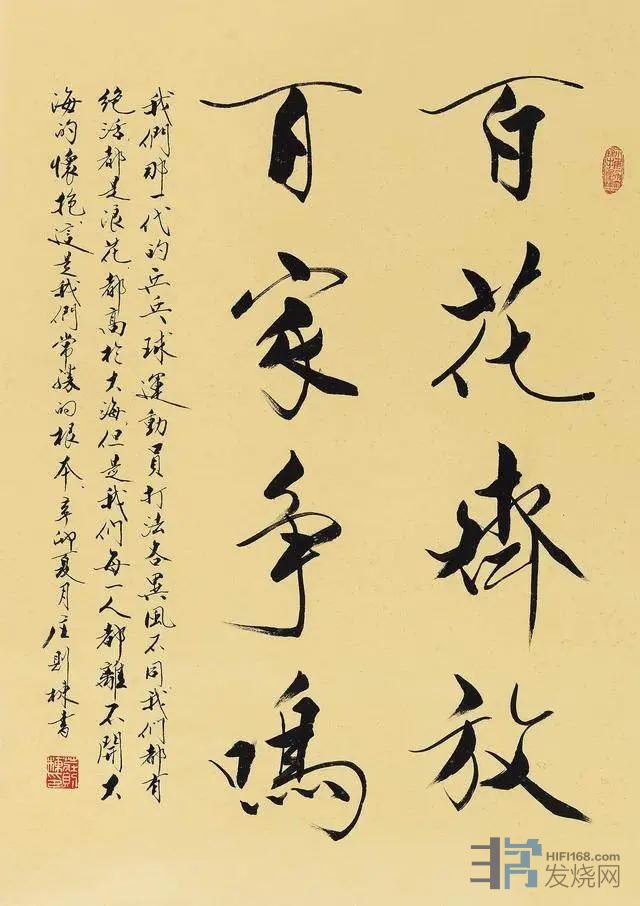 百花齊放
百家争鳴
我們那一代的乒乓球運動員打法各異風不同我们都有
绝活都是浪花都高於大海但是我们每一人都離不開大
海的懷抱這是我們常勝的根本辛卯夏月庄則棟書
莊則棟印
HIFI168.com
发烧网